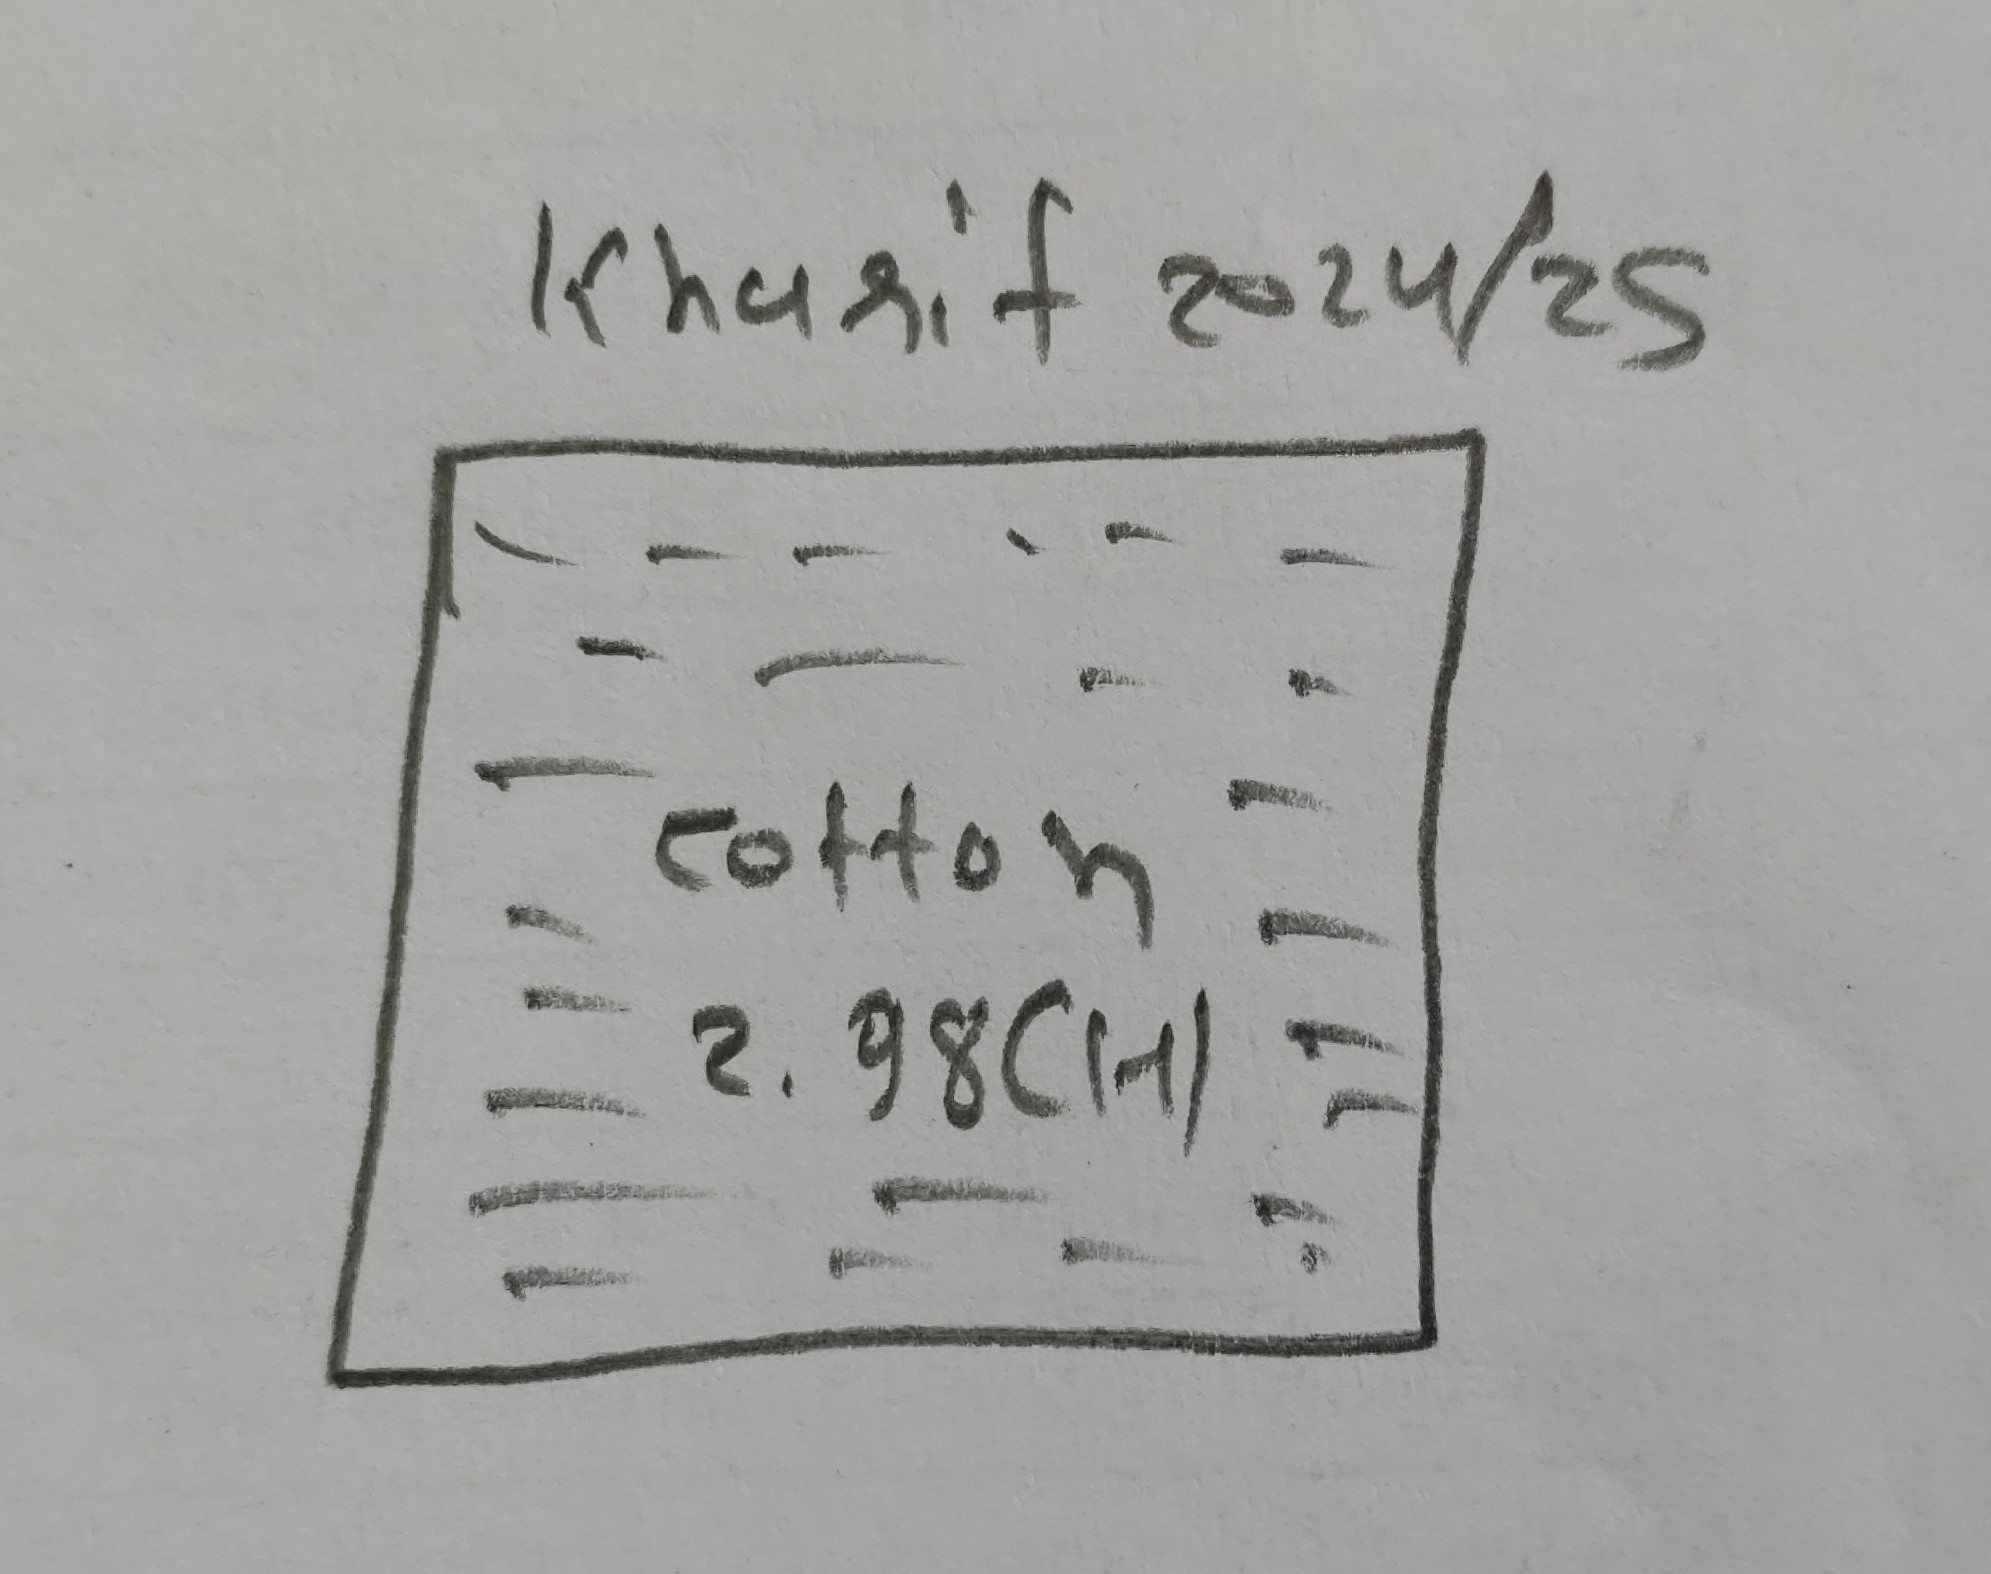 Kharif 2024/25
cotton
2.98(H)